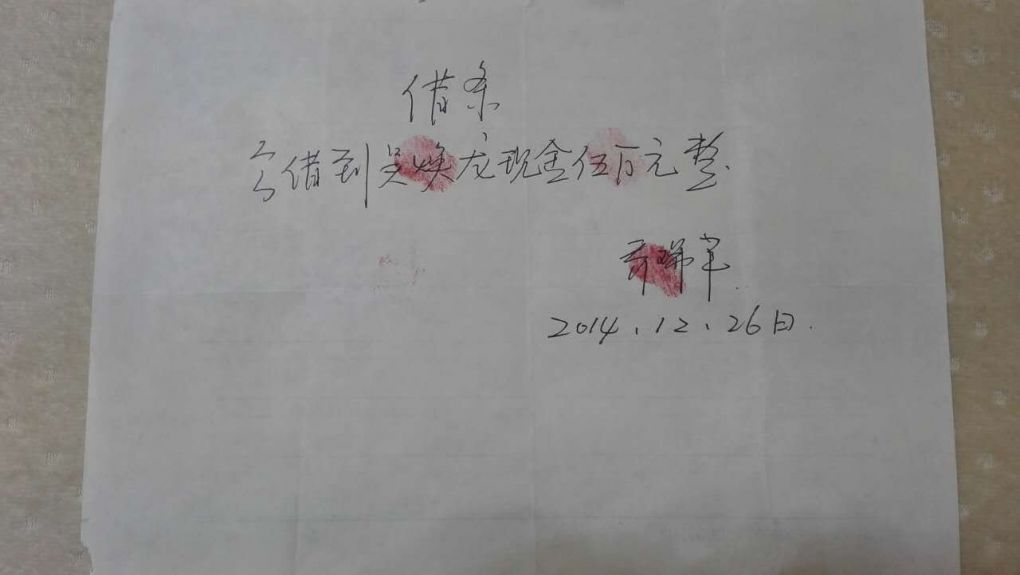 借条
今借到吴焕龙现金伍万元整.
2014.12.26日.